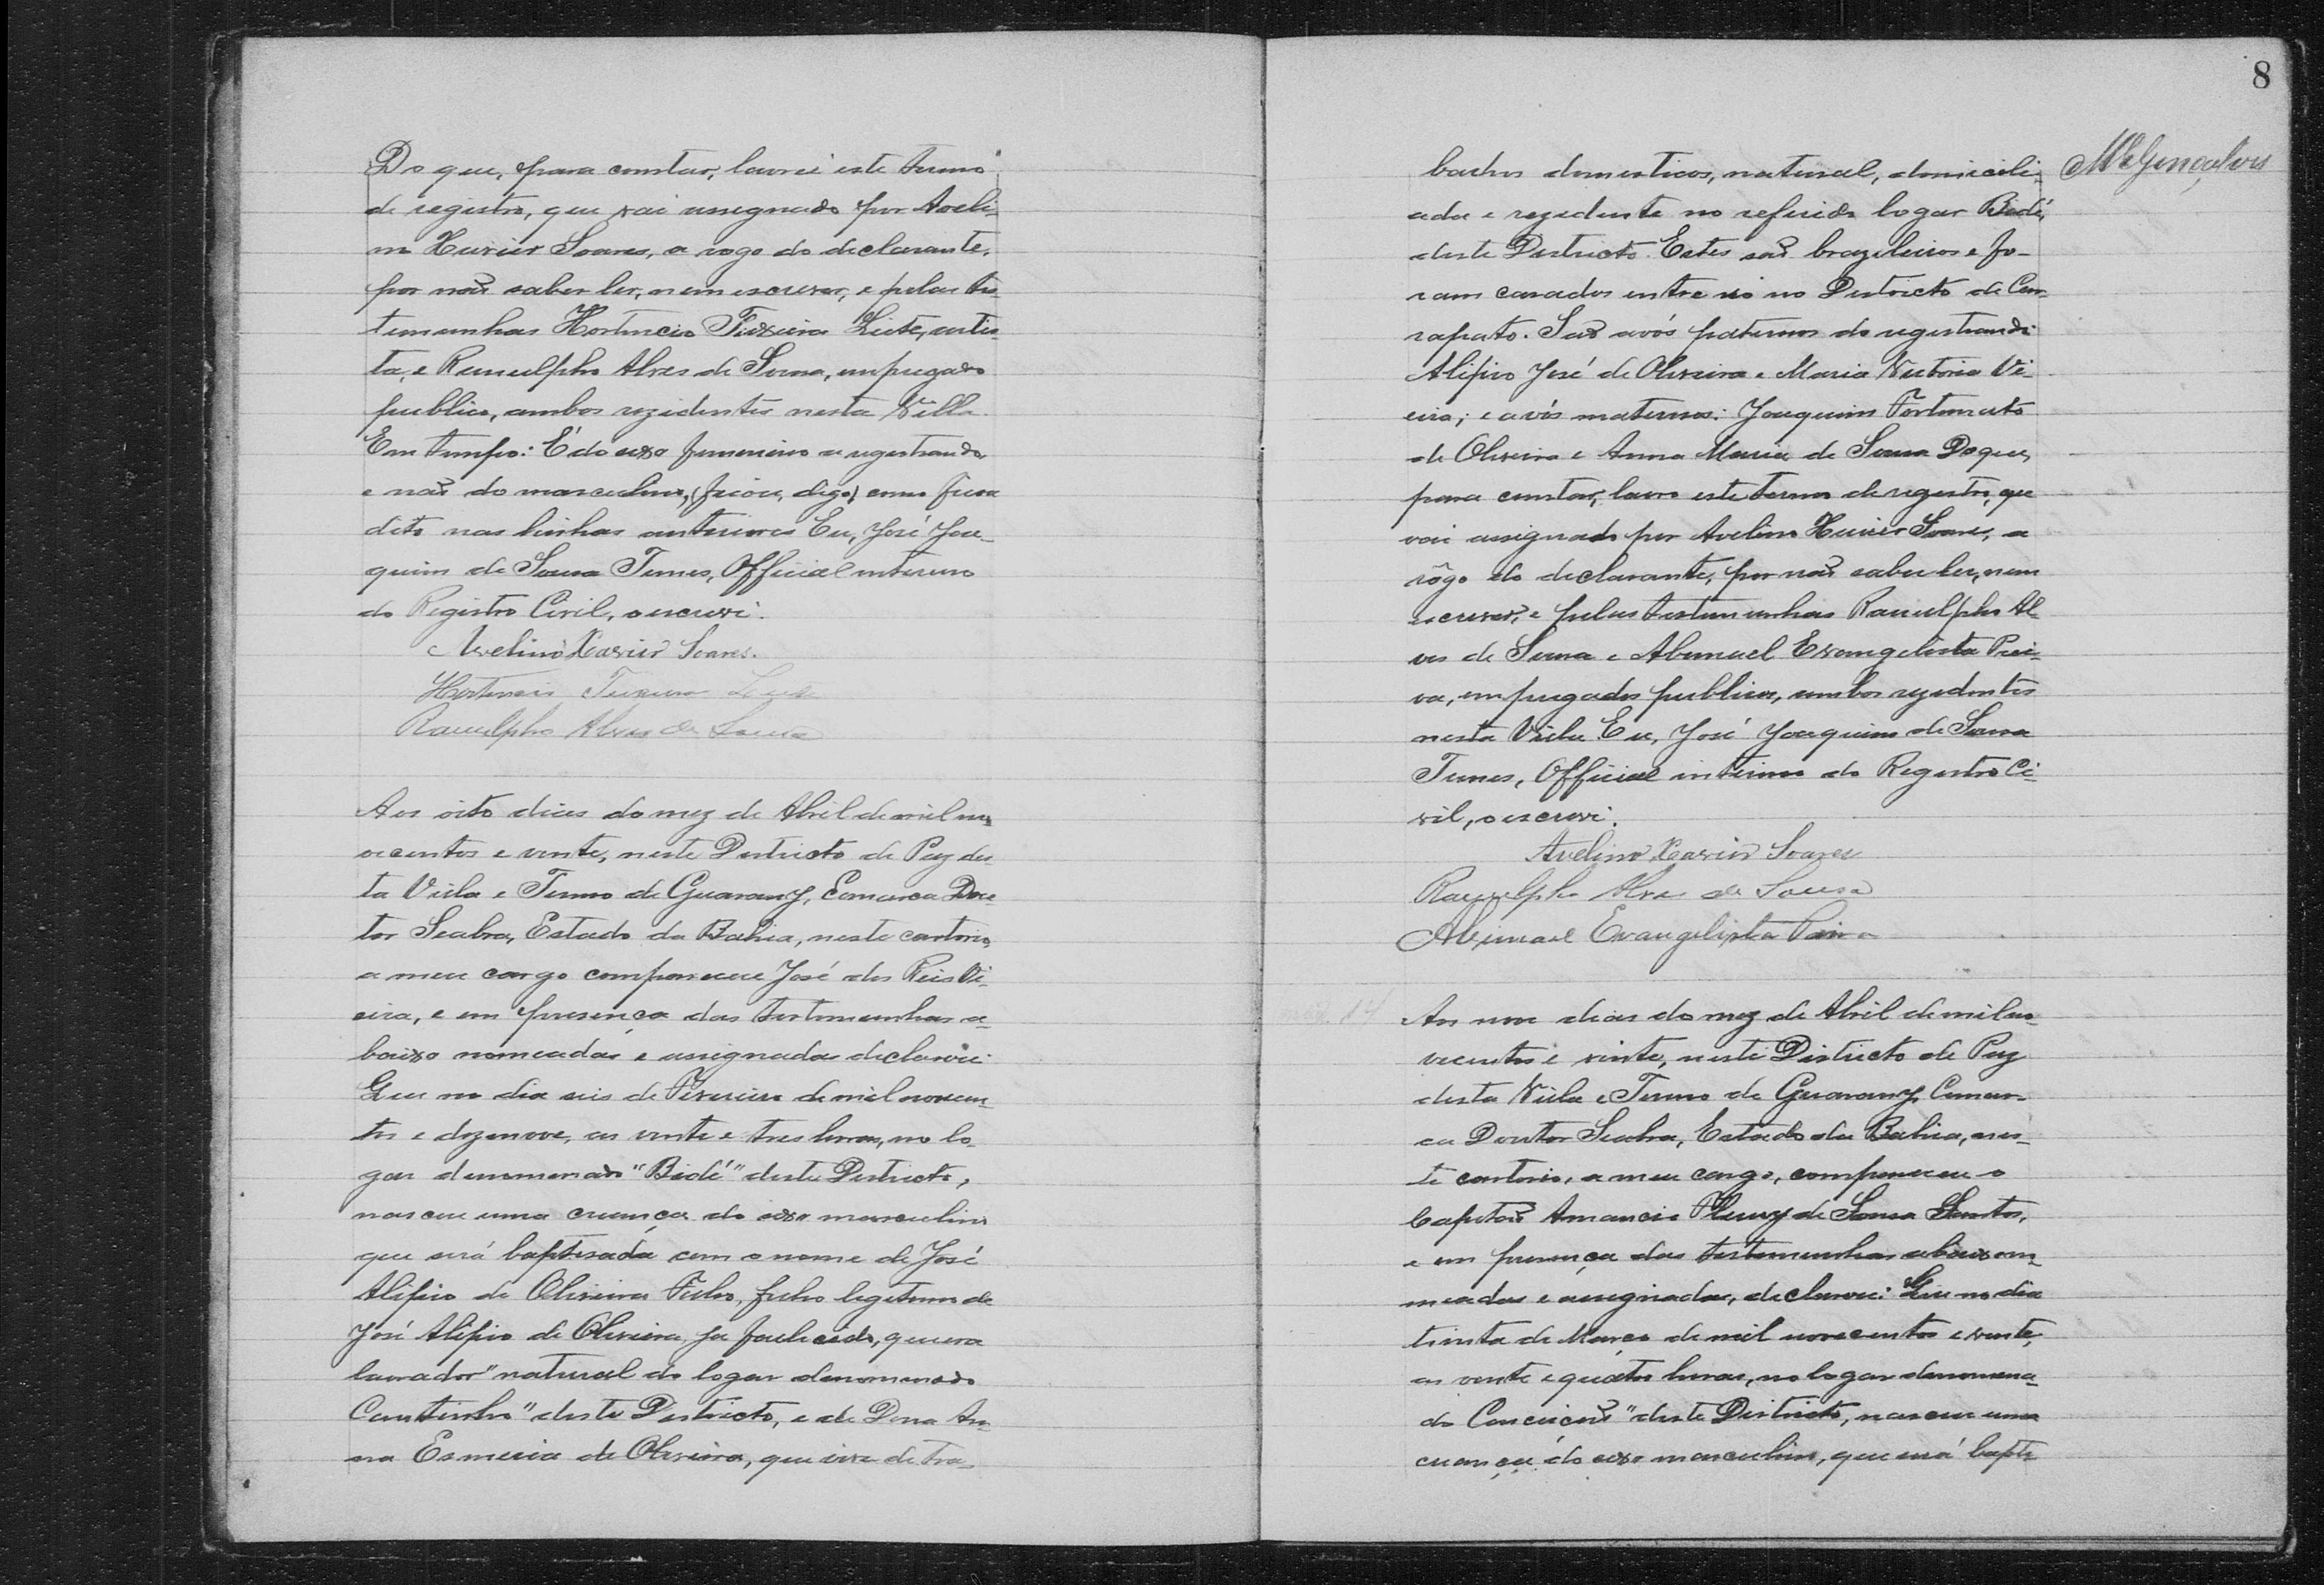 Do que, para constar, lavrei este termo
de registro, que vai assegnado por Aveli-
no Xavier Soares, a rogo do declarante,
por não saber ler, nem escrever, e pelas tes-
temunhas Hortencio Teixeira Leite, artis-
ta, e Ranulpho Alves de Sousa, empregado
publico, ambos rezidentes nesta Villa.
Em tempo: É do sexo femenino a registranda
e não do masculino, (ficou, digo) como ficou
dito nas linhas anteriores Eu, José Joa-
quim de Sousa Tunes, Official interino
do Registro Civil, o escrevi.
Avelino Xavier Soares.
Hortencio Teixeira Leite
Ranulpho Alves de Sousa
Aos oito dias do mez de Abril de mil no-
vecentos e vinte, neste Districto de Paz des-
ta Villa e Termo de Guarany, Comarca Dou-
tor Seabra, Estado da Bahia, neste cartorio,
a meu cargo compareceu José dos Reis Vi-
eira, e em presença das testemunhas a-
baixo nomeadas e assignadas declarou:
Que no dia seis de Fevereiro de mil novecen-
tos e dezenove, as vinte e tres horas, no lo-
gar denomenado "Bidé" deste Districto,
nasceu uma creança do sexo masculino
que será baptisada com o nome de José
Alipio de Oliveira Filho, filho legitimo de
José Alipio de Oliveira, ja fallecido, que era
lavrador" natural do logar denomenado
Cantinho" deste Districto, e de Dona An-
na Esmeria de Oliveira, que vive de tra-
8
balhos domesticos, natural, domicili-
ada e rezidente no referido logar Bidé,
deste Districto. Estes são brazileiros e fo-
ram casados entre si no Districto de Car-
rapato. São avós paternos do registrando:
Alipio José de Oliveira e Maria Victoria Vi-
eira; e avós maternos: Joaquim Fortunato
de Oliveira e Anna Maria de Sousa Do que,
para constar, lavro este termo de registro, que
vai assignado por Avelino Xavier Soares, a
rôgo do declarante, por não saber ler, nem
escrever, e pelas testemunhas Ranulpho Al-
ves de Sousa e Abimael Evangelista Pai-
va, empregados publicos, ambos rezidentes
nesta Villa Eu, José Joaquim de Sousa
Tunes, Official interino do Registro Ci-
vil, o escrevi.
Avelino Xavier Soares
Ranulpho Alves de Sousa
Abimael Evangelista Paiva
Aos nove dias do mez de Abril de mil no-
vecentos e vinte, neste Districto de Paz
desta Villa e Termo de Guarany, Comar-
ca Doutor Seabra, Estado da Bahia, nes-
te cartorio, a meu cargo, compareceu o
Capitão Amancio Fleury de Sousa Santos,
e em presença das testemunhas abaixo no-
meadas e assignadas, declarou: Que no dia
trinta de Março de mil novecentos e vinte,
as vinte e quatro horas, no logar denomena-
do Conceição" deste Districto, nasceu uma
creança do sexo masculino, que será bapti-